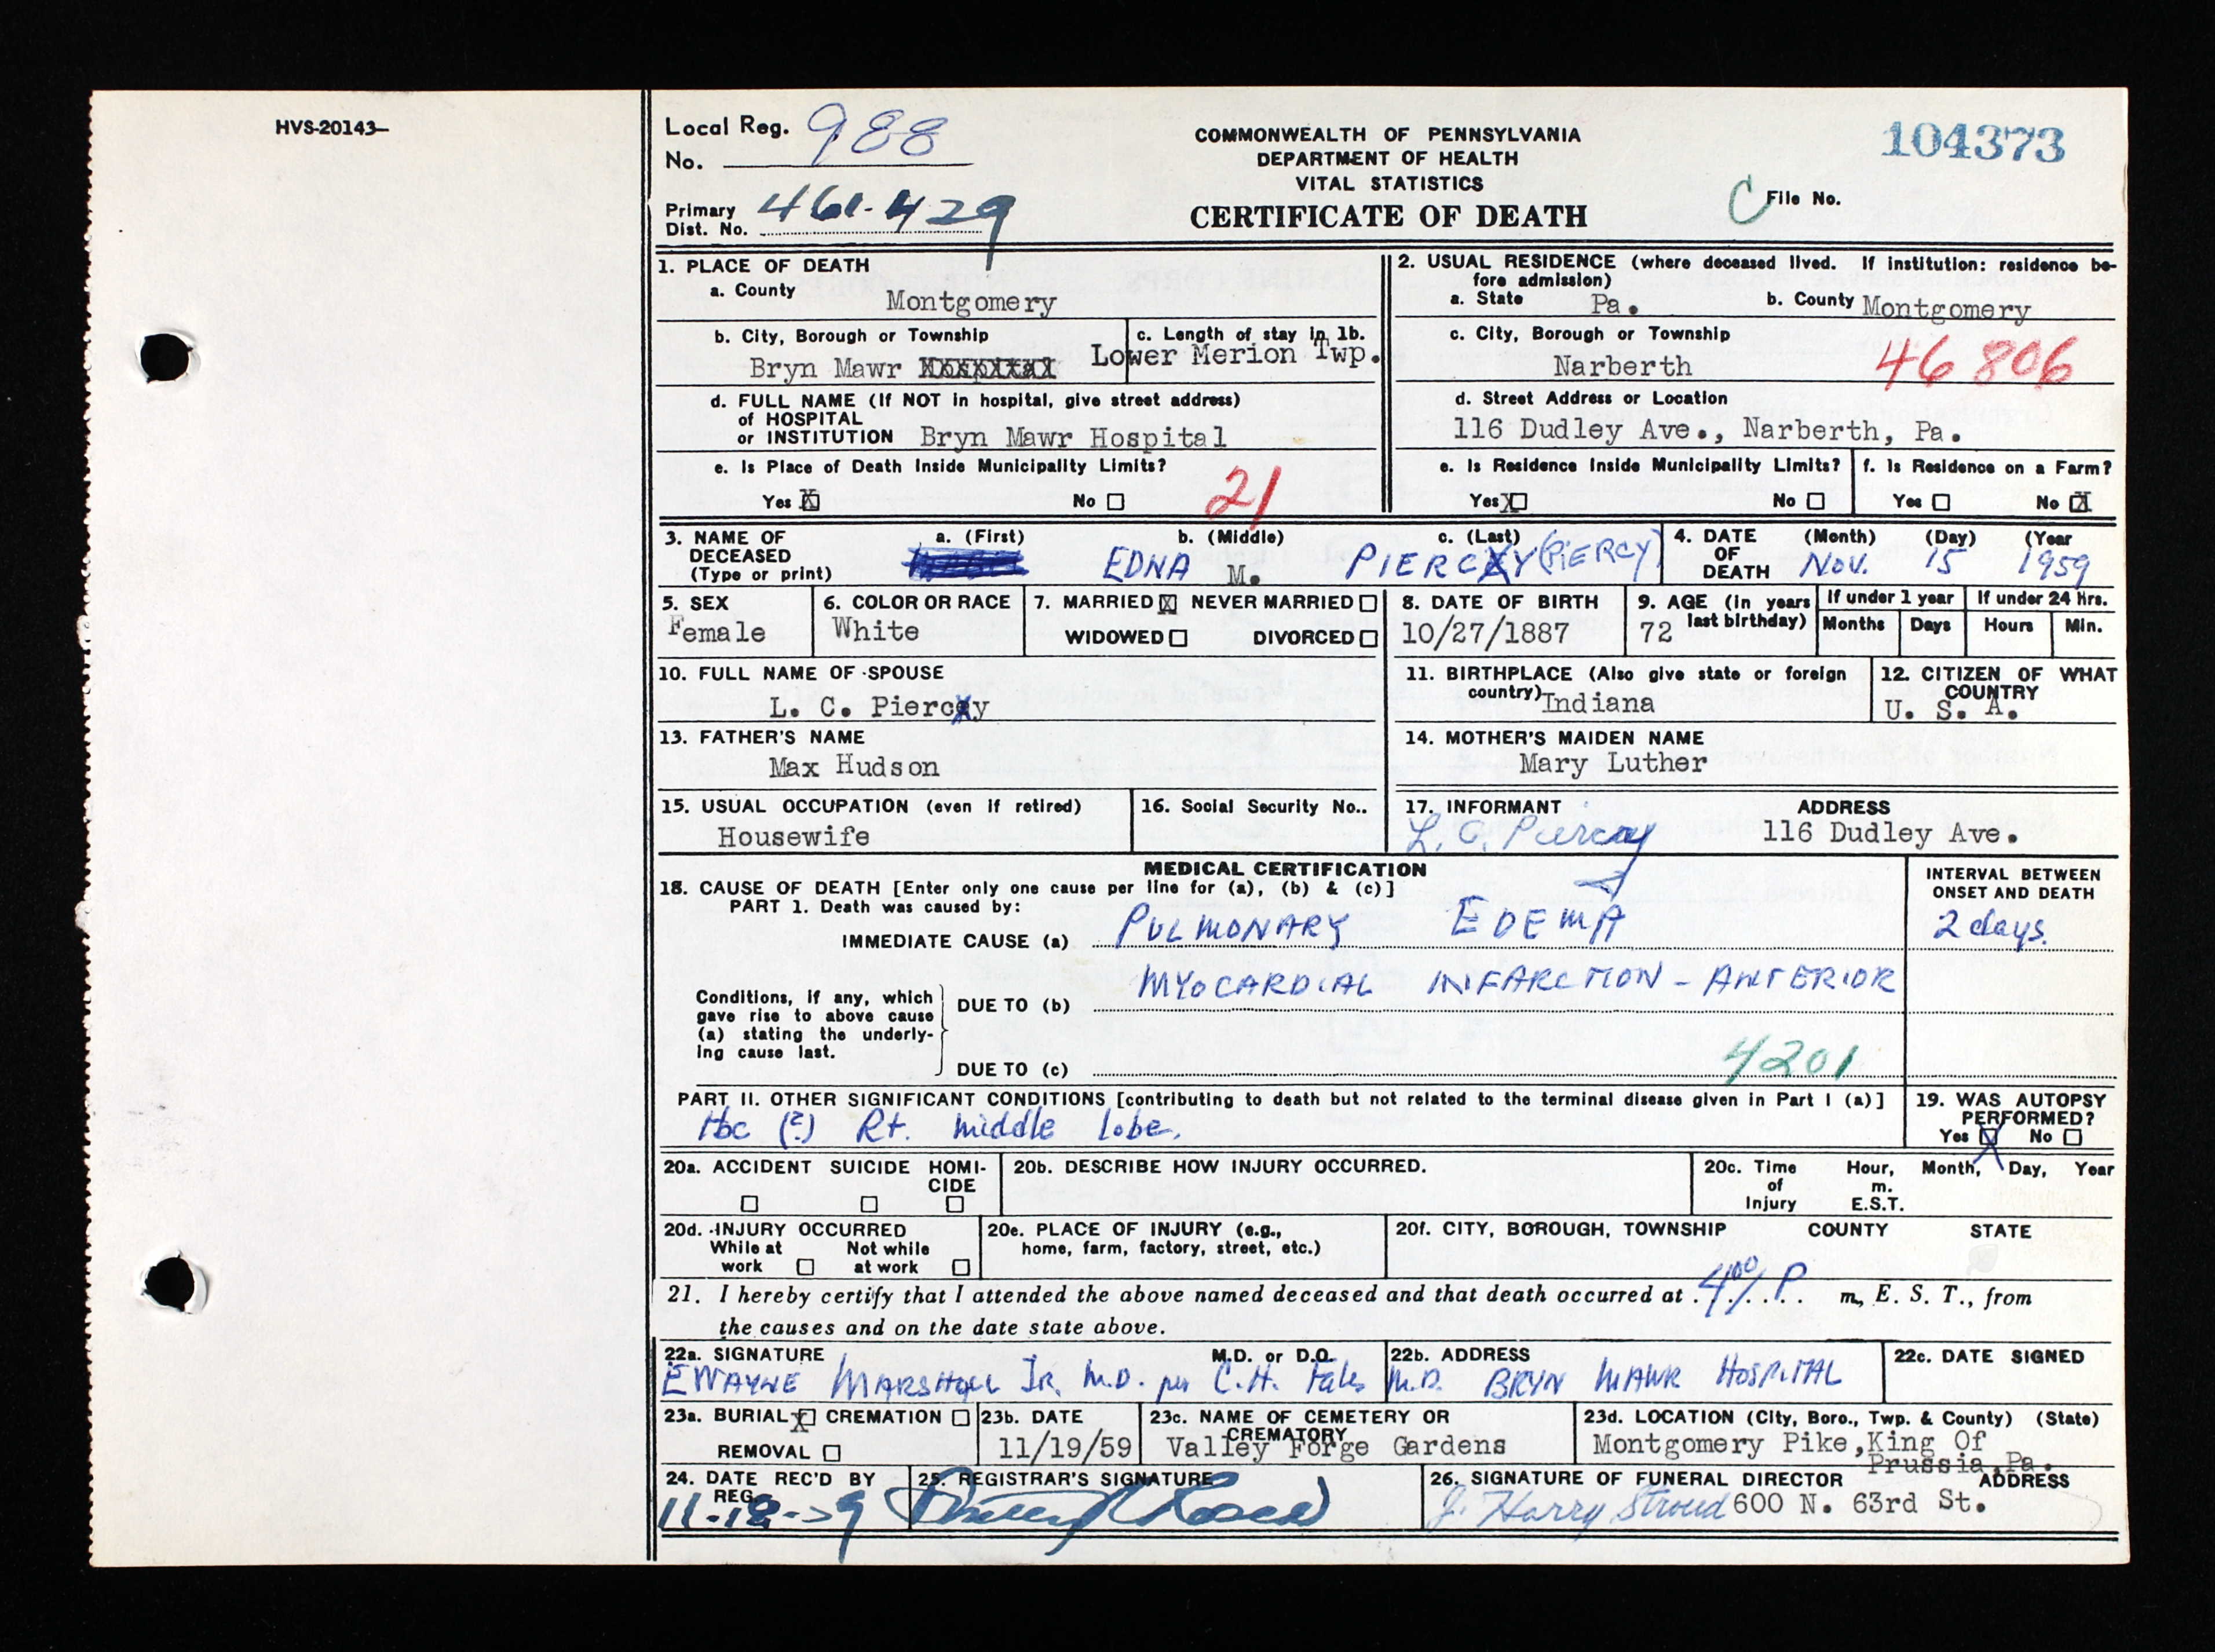 HVS-20143-
Local Reg. No. 988
COMMONWEALTH OF PENNSYLVANIA
DEPARTMENT OF HEALTH
VITAL STATISTICS
CERTIFICATE OF DEATH
104373
C File No.
Primary Dist. No. 461-429
1. PLACE OF DEATH
a. County
Montgomery
b. City, Borough or Township
Bryn Mawr
c. Length of stay in 1b.
Lower Merion Twp.
d. FULL NAME (If NOT in hospital, give street address)
of HOSPITAL
or INSTITUTION Bryn Mawr Hospital
e. Is Place of Death Inside Municipality Limits?
Yes X No
21
2. USUAL RESIDENCE (where deceased lived. If institution: residence be-
fore admission)
a. State Pa. b. County Montgomery
c. City, Borough or Township
Narberth
46 806
d. Street Address or Location
116 Dudley Ave., Narberth, Pa.
e. Is Residence Inside Municipality Limits?
Yes X No
f. Is Residence on a Farm?
Yes No X
3. NAME OF DECEASED (Type or print)
a. (First) b. (Middle) c. (Last)
EDNA M. PIERCY (PIERCY)
4. DATE OF DEATH (Month) (Day) (Year
Nov. 15 1959
5. SEX
Female
6. COLOR OR RACE
White
7. MARRIED X NEVER MARRIED
WIDOWED DIVORCED
8. DATE OF BIRTH
10/27/1887
9. AGE (in years last birthday)
72
If under 1 year
Months Days
If under 24 hrs.
Hours Min.
10. FULL NAME OF SPOUSE
L. C. Piercy
11. BIRTHPLACE (Also give state or foreign
country) Indiana
12. CITIZEN OF WHAT
COUNTRY
U. S. A.
13. FATHER'S NAME
Max Hudson
14. MOTHER'S MAIDEN NAME
Mary Luther
15. USUAL OCCUPATION (even if retired)
Housewife
16. Social Security No..
17. INFORMANT ADDRESS
L. C. Piercy 116 Dudley Ave.
MEDICAL CERTIFICATION
18. CAUSE OF DEATH [Enter only one cause per line for (a), (b) & (c)]
PART 1. Death was caused by:
IMMEDIATE CAUSE (a) PULMONARY EDEMA
INTERVAL BETWEEN
ONSET AND DEATH
2 days.
Conditions, if any, which
gave rise to above cause
(a) stating the underly-
ing cause last.
DUE TO (b) MYOCARDIAL INFARCTION - ANTERIOR
DUE TO (c)
4201
PART II. OTHER SIGNIFICANT CONDITIONS [contributing to death but not related to the terminal disease given in Part I (a)]
tbc (?) Rt. middle lobe.
19. WAS AUTOPSY
PERFORMED?
Yes X No
20a. ACCIDENT SUICIDE HOMI-
CIDE
20b. DESCRIBE HOW INJURY OCCURRED.
20c. Time of Injury
Hour, Month, Day, Year
m.
E.S.T.
20d. INJURY OCCURRED
While at work Not while at work
20e. PLACE OF INJURY (e.g.,
home, farm, factory, street, etc.)
20f. CITY, BOROUGH, TOWNSHIP COUNTY STATE
21. I hereby certify that I attended the above named deceased and that death occurred at 4:00 P m., E. S. T., from
the causes and on the date state above.
22a. SIGNATURE M.D. or D.O.
E WAYNE MARSHALL JR. M.D. per C.H. Fales M.D.
22b. ADDRESS
BRYN MAWR HOSPITAL
22c. DATE SIGNED
23a. BURIAL X CREMATION
REMOVAL
23b. DATE
11/19/59
23c. NAME OF CEMETERY OR
CREMATORY
Valley Forge Gardens
23d. LOCATION (City, Boro., Twp. & County) (State)
Montgomery Pike, King Of
Prussia, Pa.
24. DATE REC'D BY
REG.
11-18-59
25. REGISTRAR'S SIGNATURE
26. SIGNATURE OF FUNERAL DIRECTOR ADDRESS
J. Harry Stroud 600 N. 63rd St.